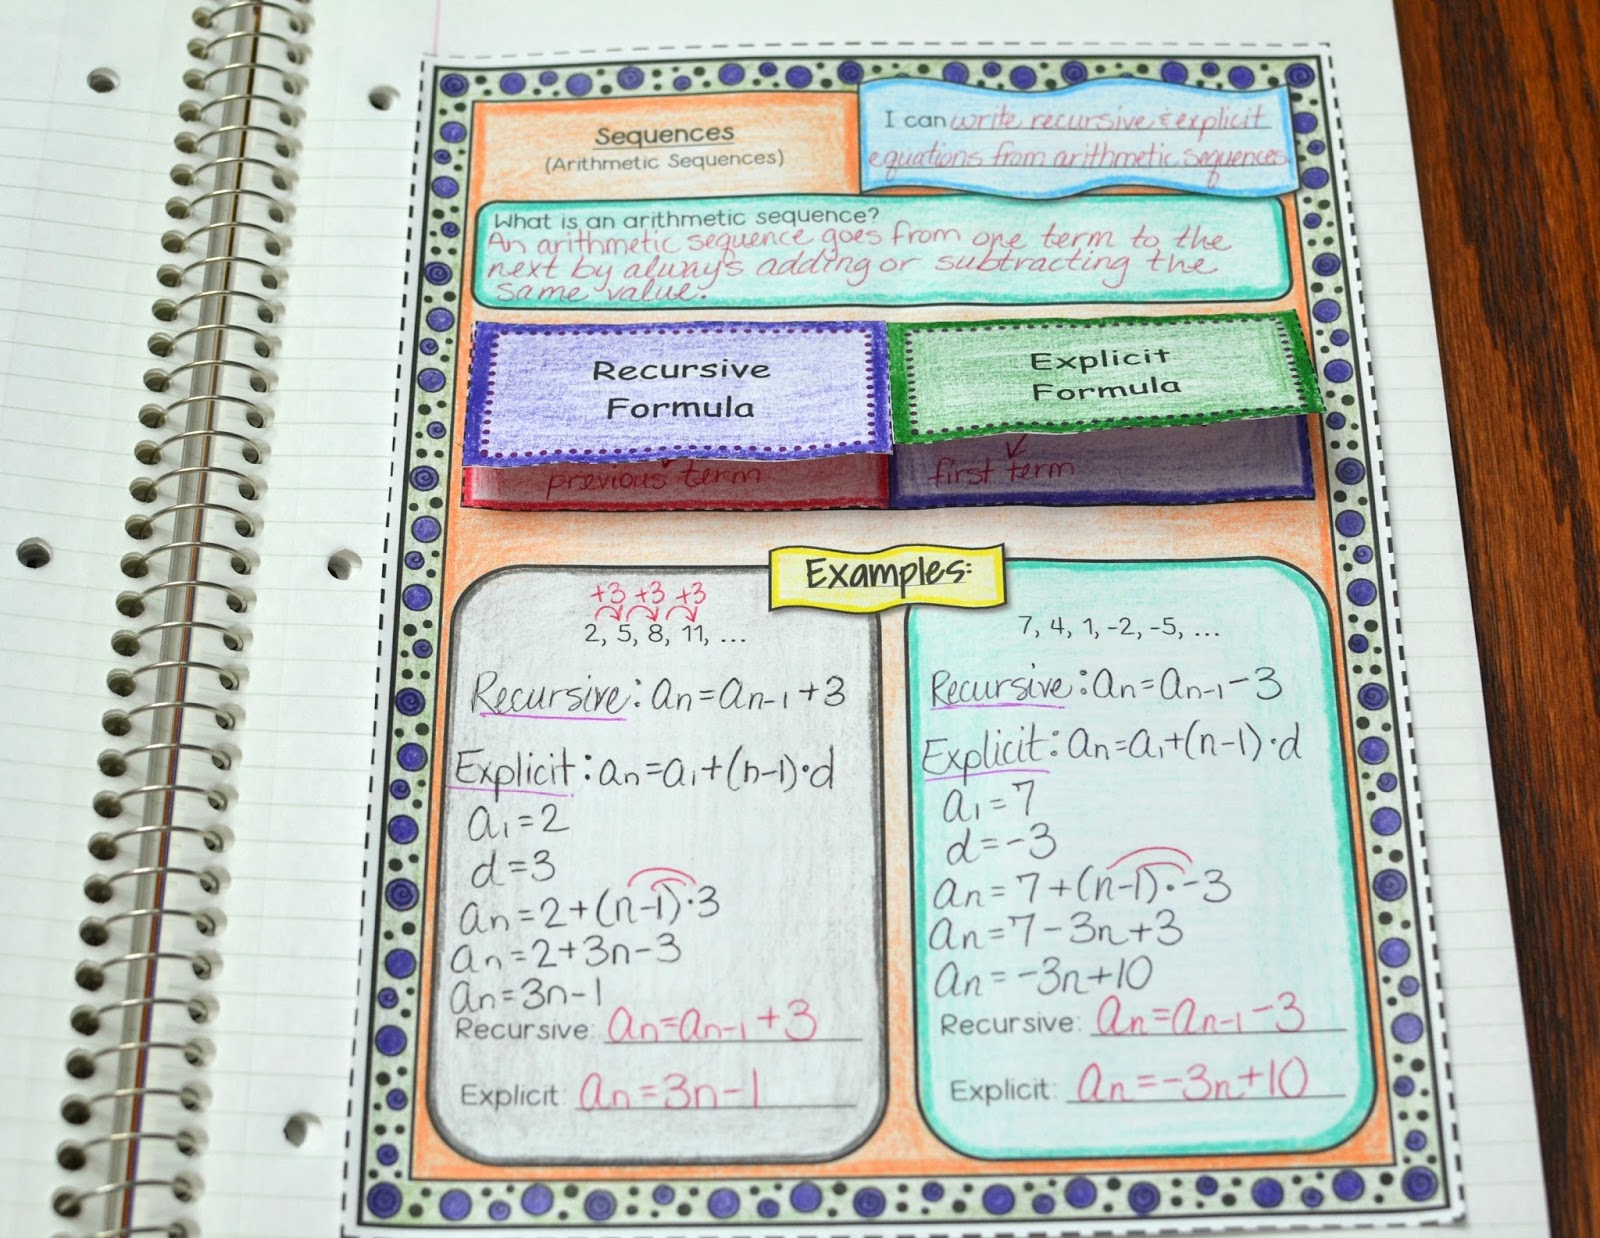 Sequences
(Arithmetic Sequences)
I can write recursive & explicit
equations from arithmetic sequences
What is an arithmetic sequence?
An arithmetic sequence goes from one term to the
next by always adding or subtracting the
same value.
Recursive
Formula
previous term
Explicit
Formula
first term
Examples:
+3 +3 +3
2, 5, 8, 11, ...
Recursive: an=an-1+3
Explicit: an=a1+(n-1)·d
a1=2
d=3
an=2+(n-1)·3
an=2+3n-3
an=3n-1
Recursive: an=an-1+3
Explicit: an=3n-1
7, 4, 1, -2, -5, ...
Recursive: an=an-1-3
Explicit: an=a1+(n-1)·d
a1=7
d=-3
an=7+(n-1)·-3
an=7-3n+3
an=-3n+10
Recursive: an=an-1-3
Explicit: an=-3n+10